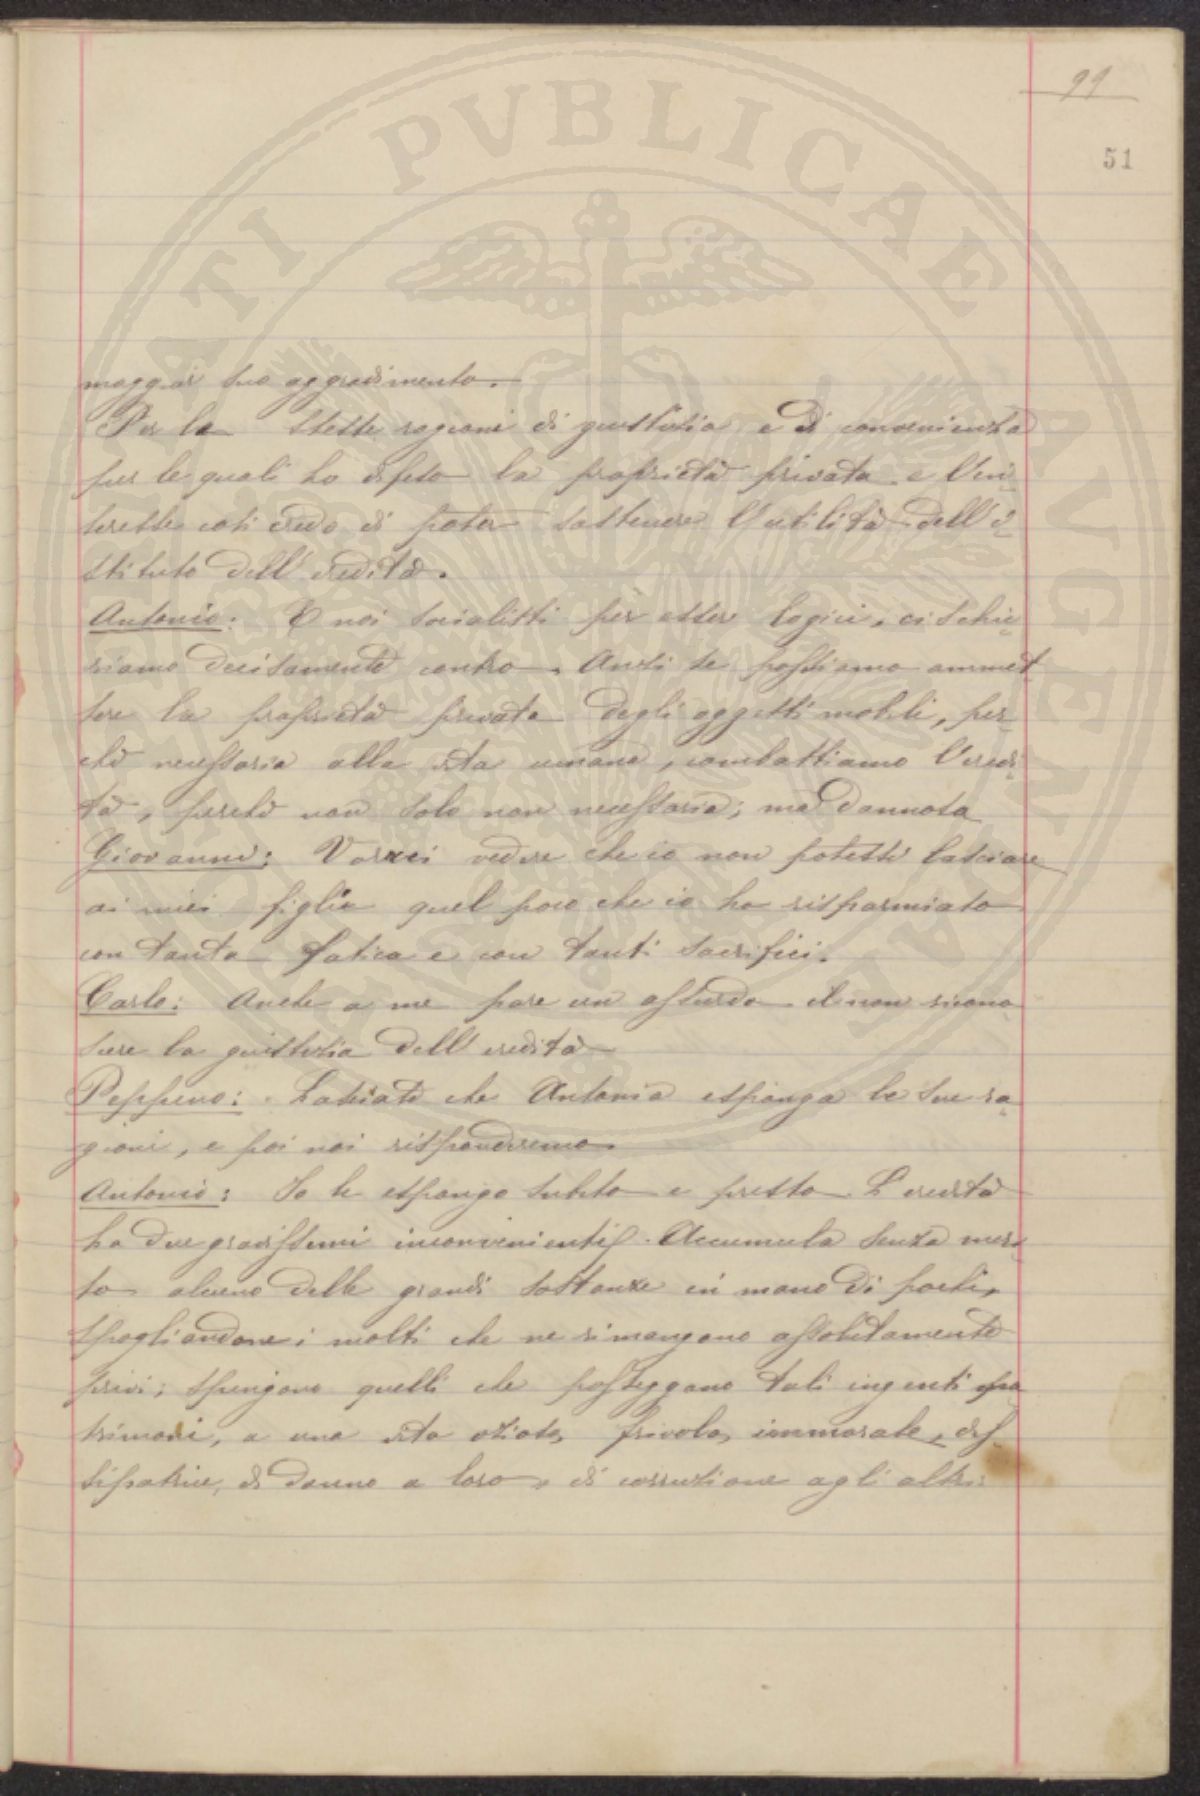 99
51
PUBLICAE
maggior suo aggradimento.
Per le stesse ragioni di giustizia e di convenienza
per le quali ho difeso la proprietà privata e l'in
teresse così credo di poter sostenere l'utilità dell'i
stituto dell'eredità.
Antonio: E noi socialisti per esser logici, ci schie
riamo decisamente contro. Anzi se possiamo ammet
tere la proprietà privata degli oggetti mobili, per
chè necessaria alla vita umana, combattiamo l'eredi
tà, perchè non solo non necessaria; ma dannosa
Giovanni: Vorrei vedere che io non potessi lasciare
ai miei figli quel poco che io ho risparmiato
con tanta fatica e con tanti sacrifici.
Carlo: Anche a me pare un assurdo il non ricono
scere la giustizia dell'eredità
Peppino: Lasciate che Antonio esponga le sue ra
gioni, e poi noi risponderemo.
Antonio: Io le espongo subito e presto. L'eredità
ha due gravissimi inconvenienti. Accumula senza meri
to alcuno delle grandi sostanze in mano di pochi,
spogliandone i molti che ne rimangono assolutamente
privi; spingono quelli che posseggano tali ingenti pa
trimoni, a una vita oziosa, frivola, immorale, dis
sipatrice, di danno a loro e di corruzione agli altri